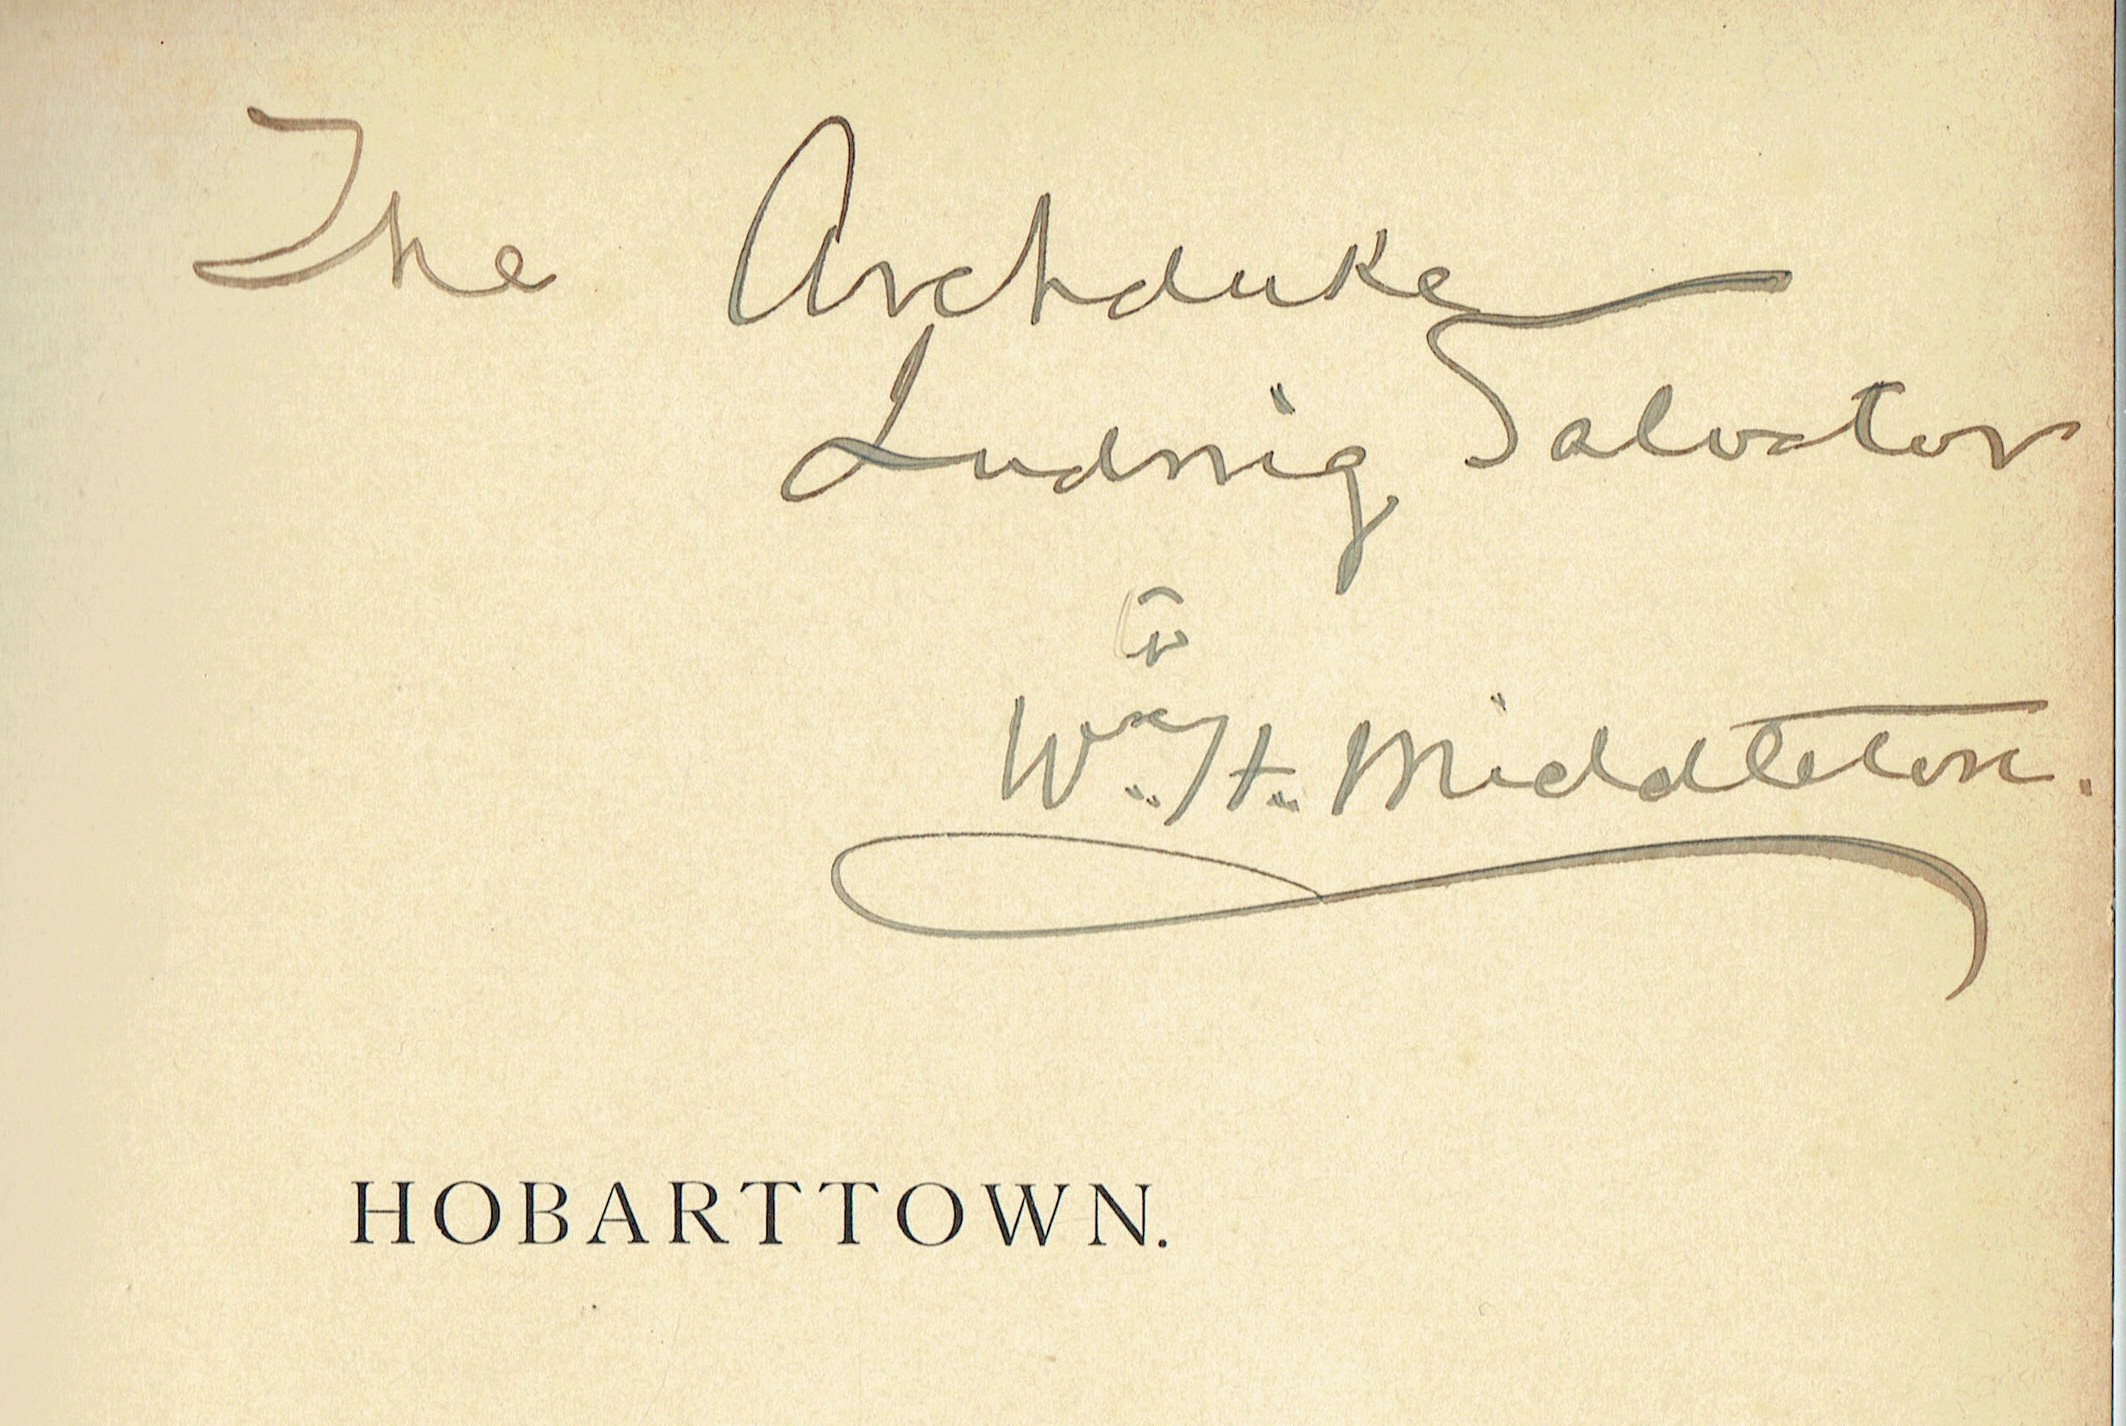 The Archduke
Ludwig Salvator
to
Wm. H. Middleton.
HOBARTTOWN.